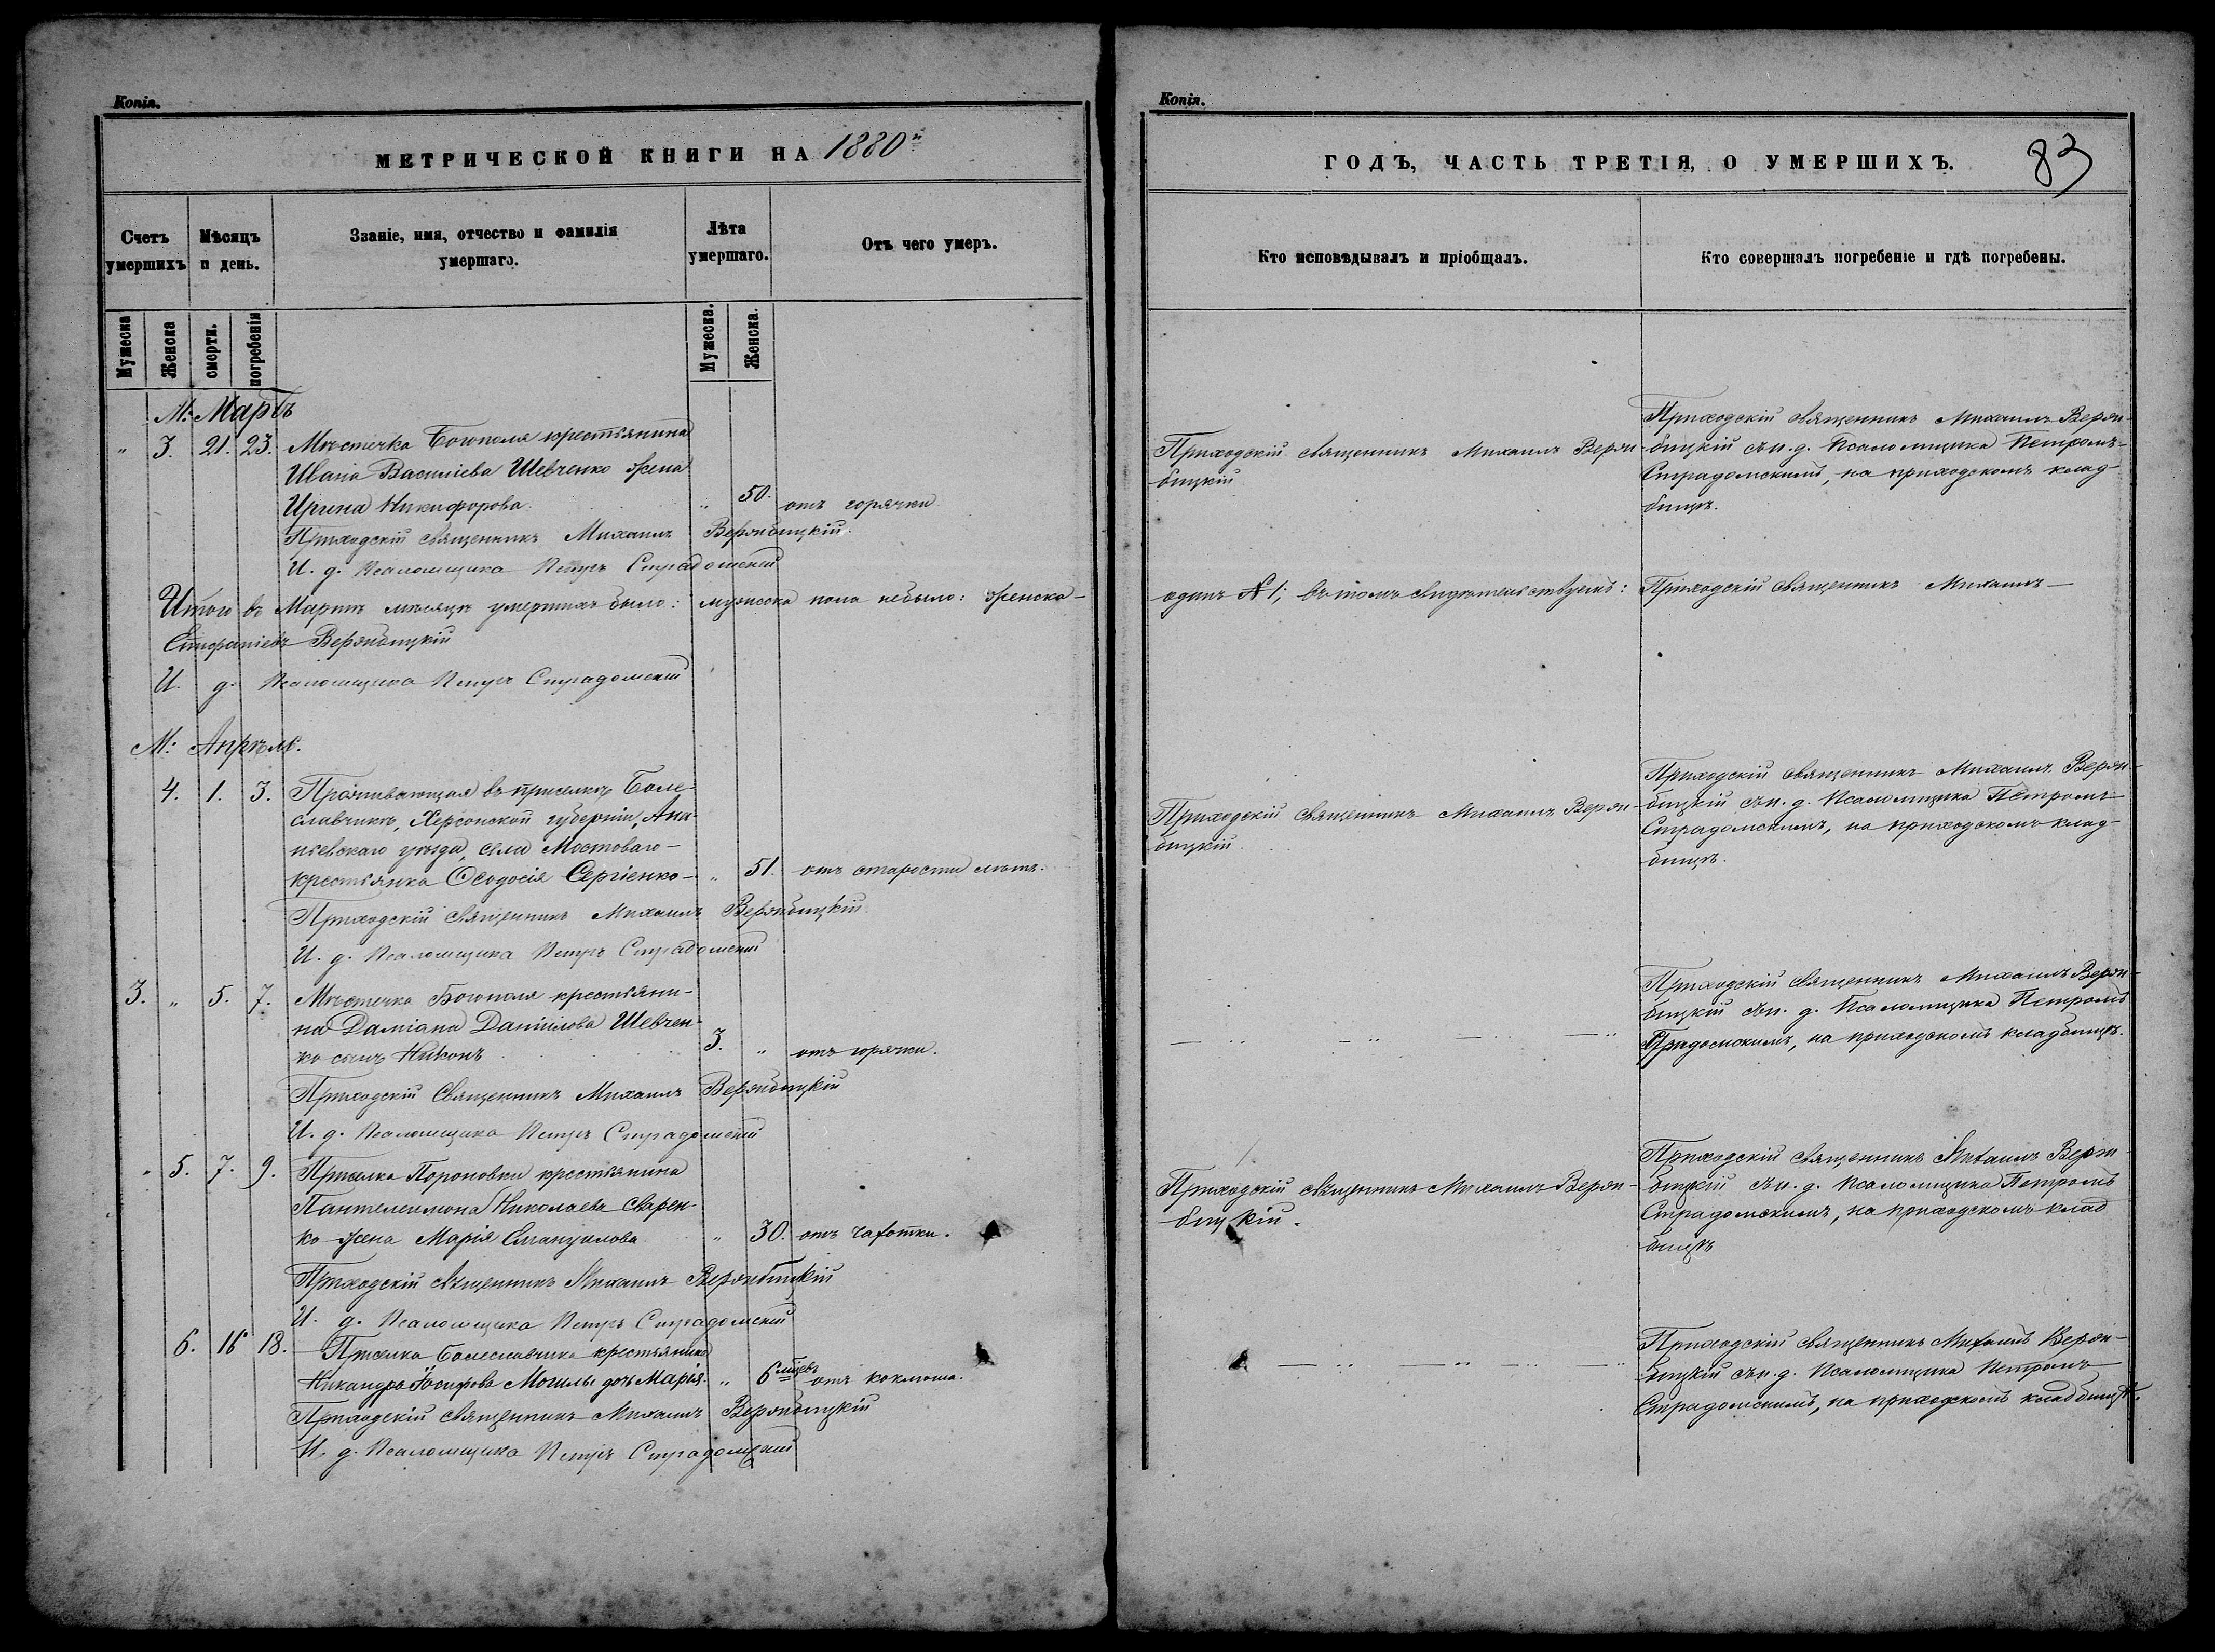 Копія.
МЕТРИЧЕСКОЙ КНИГИ НА 1880й
Счетъ умершихъ
Мѣсяцъ и день.
Званіе, имя, отчество и фамилія умершаго.
Лѣта умершаго.
Отъ чего умеръ.
Мужеска
Женска
смерти.
погребенія
Мужеска.
Женска.
М: Мартъ
" 3. 21. 23. Мѣстечка Богополя крестьянина
Ивана Василіева Шевченко жена
Ирина Никифорова. " 50. отъ горячки
Приходскій священникъ Михаилъ Вержбицкій.
И. д. Псаломщика Петръ Страдомскій
Итого въ Мартѣ мѣсяцѣ умершихъ было: мужеска пола небыло: женска-
Стефаніевъ Вержбицкій
И. д. Псаломщика Петръ Страдомскій
М: Апрѣль.
4. 1. 3. Проживающая въ приселкѣ Боле-
славчикѣ, Херсонской губерніи, Ана-
ньевскаго уѣзда, села Мостоваго-
крестьянка Ѳеодосія Сергіенко- " 51. отъ старости лѣтъ.
Приходскій священникъ Михаилъ Вержбицкій
И. д. Псаломщика Петръ Страдомскій
3. " 5. 7. Мѣстечка Богополя крестьяни-
на Даміана Даніилова Шевчен-
ко сынъ Никонъ 3. " отъ горячки.
Приходскій Священникъ Михаилъ Вержбицкій
И. д. Псаломщика Петръ Страдомскій
" 5. 7. 9. Приселка Пороновки крестьянина
Пантелеимона Николаева Сварен-
ко жена Марія Емануилова " 30. отъ чахотки.
Приходскій священникъ Михаилъ Вержбицкій
И. д. Псаломщика Петръ Страдомскій
6. 16 18. Приселка Болеславчика крестьянина
Никандра Іосифова Могилы дочь Марія. " 6 мцевъ отъ коклюша.
Приходскій священникъ Михаилъ Вержбицкій
И. д. Псаломщика Петръ Страдомскій
Копія.
ГОДЪ, ЧАСТЬ ТРЕТІЯ, О УМЕРШИХЪ.
83
Кто исповѣдывалъ и пріобщалъ.
Кто совершалъ погребеніе и гдѣ погребены.
Приходскій священникъ Михаилъ Верж-
бицкій
Приходскій священникъ Михаилъ Верж-
бицкій съ и. д. Псаломщика Петромъ-
Страдомскимъ, на приходскомъ клад-
бищѣ.
одинъ № 1; въ томъ свидѣтельствуемъ: Приходскій священникъ Михаилъ-
Приходскій священникъ Михаилъ Верж-
бицкій.
Приходскій священникъ Михаилъ Верж-
бицкій съ и. д. Псаломщика Петромъ-
Страдомскимъ, на приходскомъ клад-
бищѣ.
Приходскій священникъ Михаилъ Верж-
бицкій съ и. д. Псаломщика Петромъ
Страдомскимъ, на приходскомъ кладбищѣ.
Приходскій священникъ Михаилъ Верж-
бицкій.
Приходскій священникъ Михаилъ Верж-
бицкій съ и. д. Псаломщика Петромъ
Страдомскимъ, на приходскомъ клад
бищѣ
Приходскій священникъ Михаилъ Верж-
бицкій съ и. д. Псаломщика Петромъ
Страдомскимъ, на приходскомъ кладбищѣ.